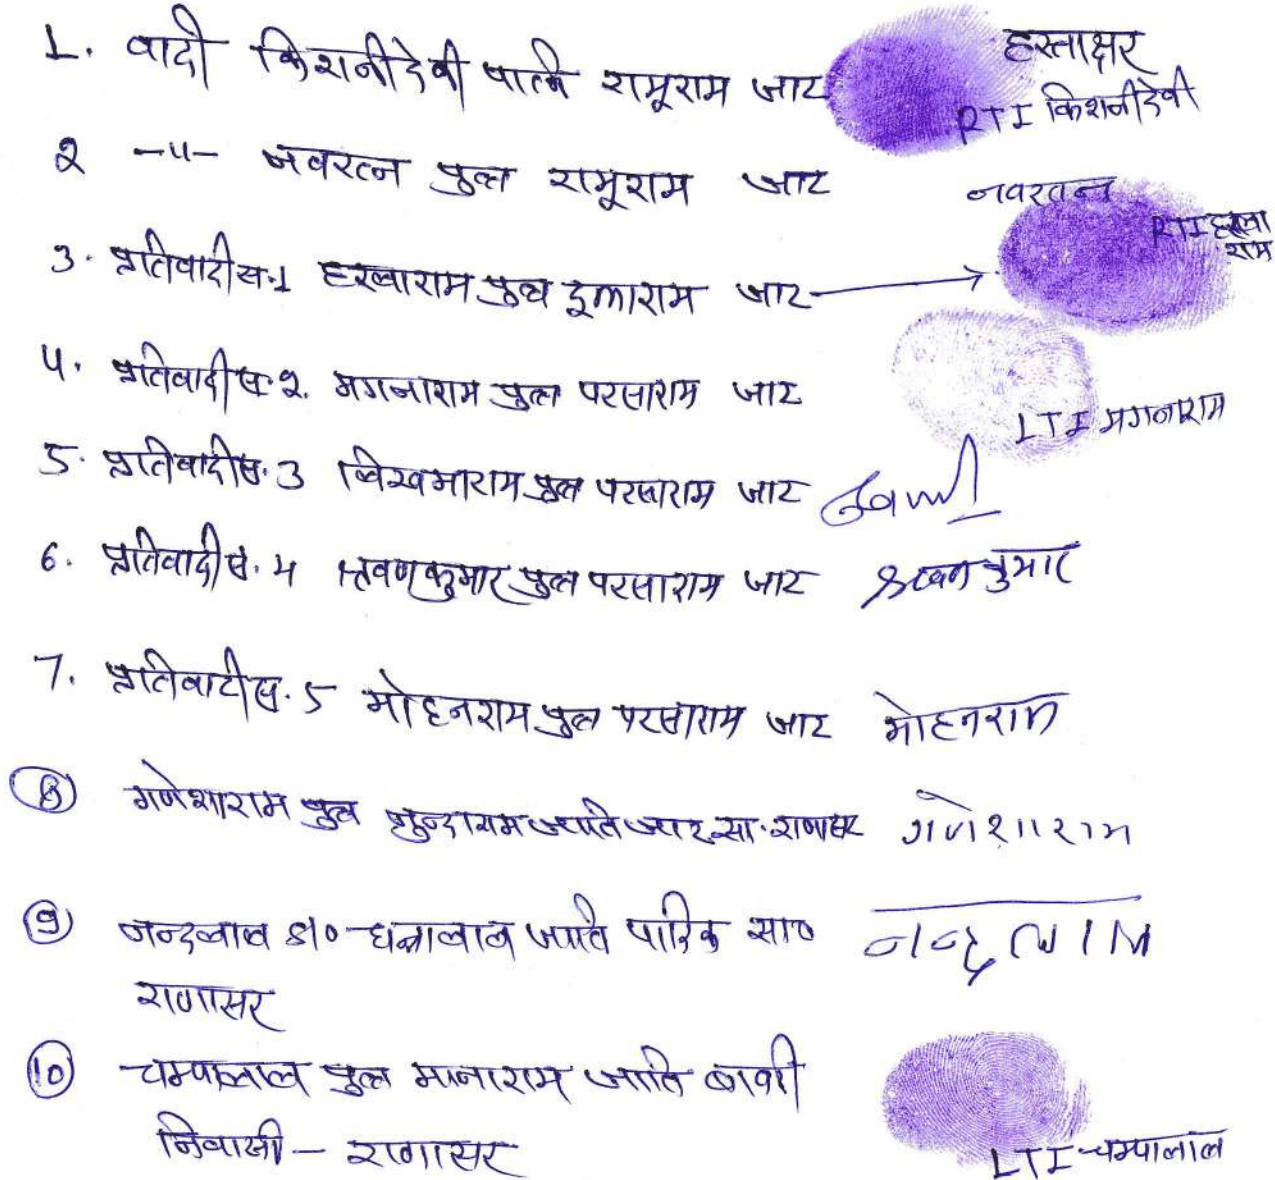 हस्ताक्षर
1. वादी किशनीदेवी पत्नि रामूराम जाट RTI किशनीदेवी
2 -॥- नवरत्न पुत्र रामूराम जाट नवरतन
3. प्रतिवादी स.1 हरलाराम पुत्र दूलाराम जाट RTI हरला
राम
4. प्रतिवादी स.2. मगनाराम पुत्र परसाराम जाट LTI मगनाराम
5. प्रतिवादी स.3 पुत्र परसाराम जाट
6. प्रतिवादी स.4 श्रवणकुमार पुत्र परसाराम जाट श्रवनकुमार
7. प्रतिवादी स.5 मोहनराम पुत्र परसाराम जाट मोहनराम
8 गणेशाराम पुत्र जाति जाट सा. राणासर गणेशाराम
9 नन्दलाल S/o धन्नालाल जाति पारिक सा० नन्दलाल
राणासर
10 चम्पालाल पुत्र मानाराम जाति
निवासी - राणासर LTI चम्पालाल